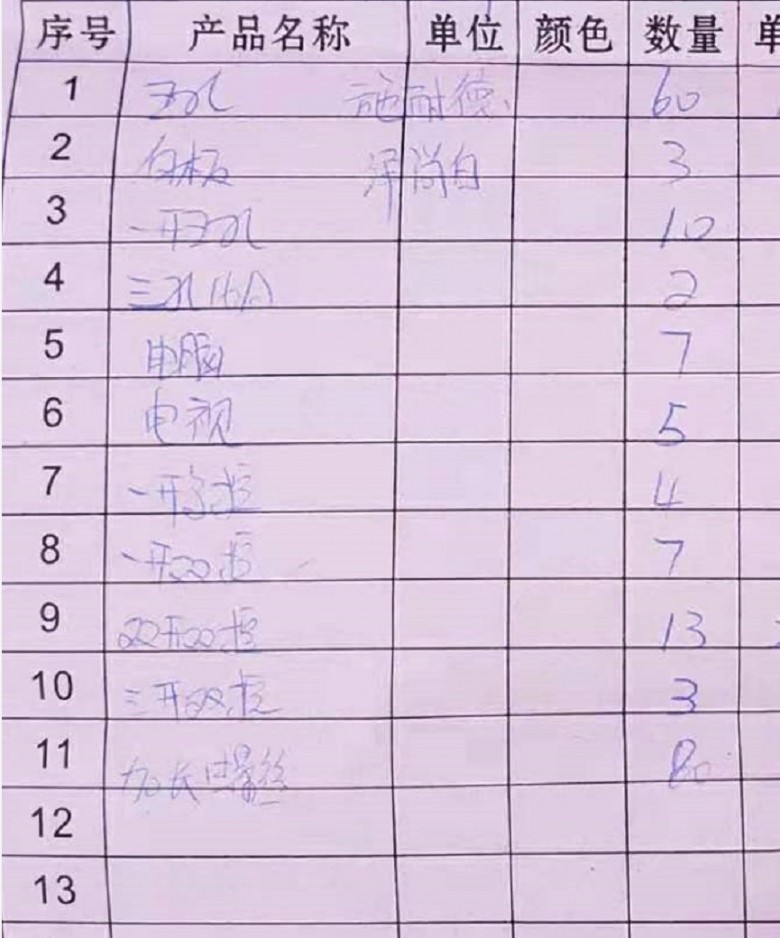 序号 产品名称 单位 颜色 数量 单
1 五孔 施耐德 60
2 白板 泽尚白 3
3 一开五孔 10
4 三孔16A 2
5 电脑 7
6 电视 5
7 一开多控 4
8 一开双控 7
9 双开双控 13
10 三开双控 3
11 加长螺丝 80
12
13